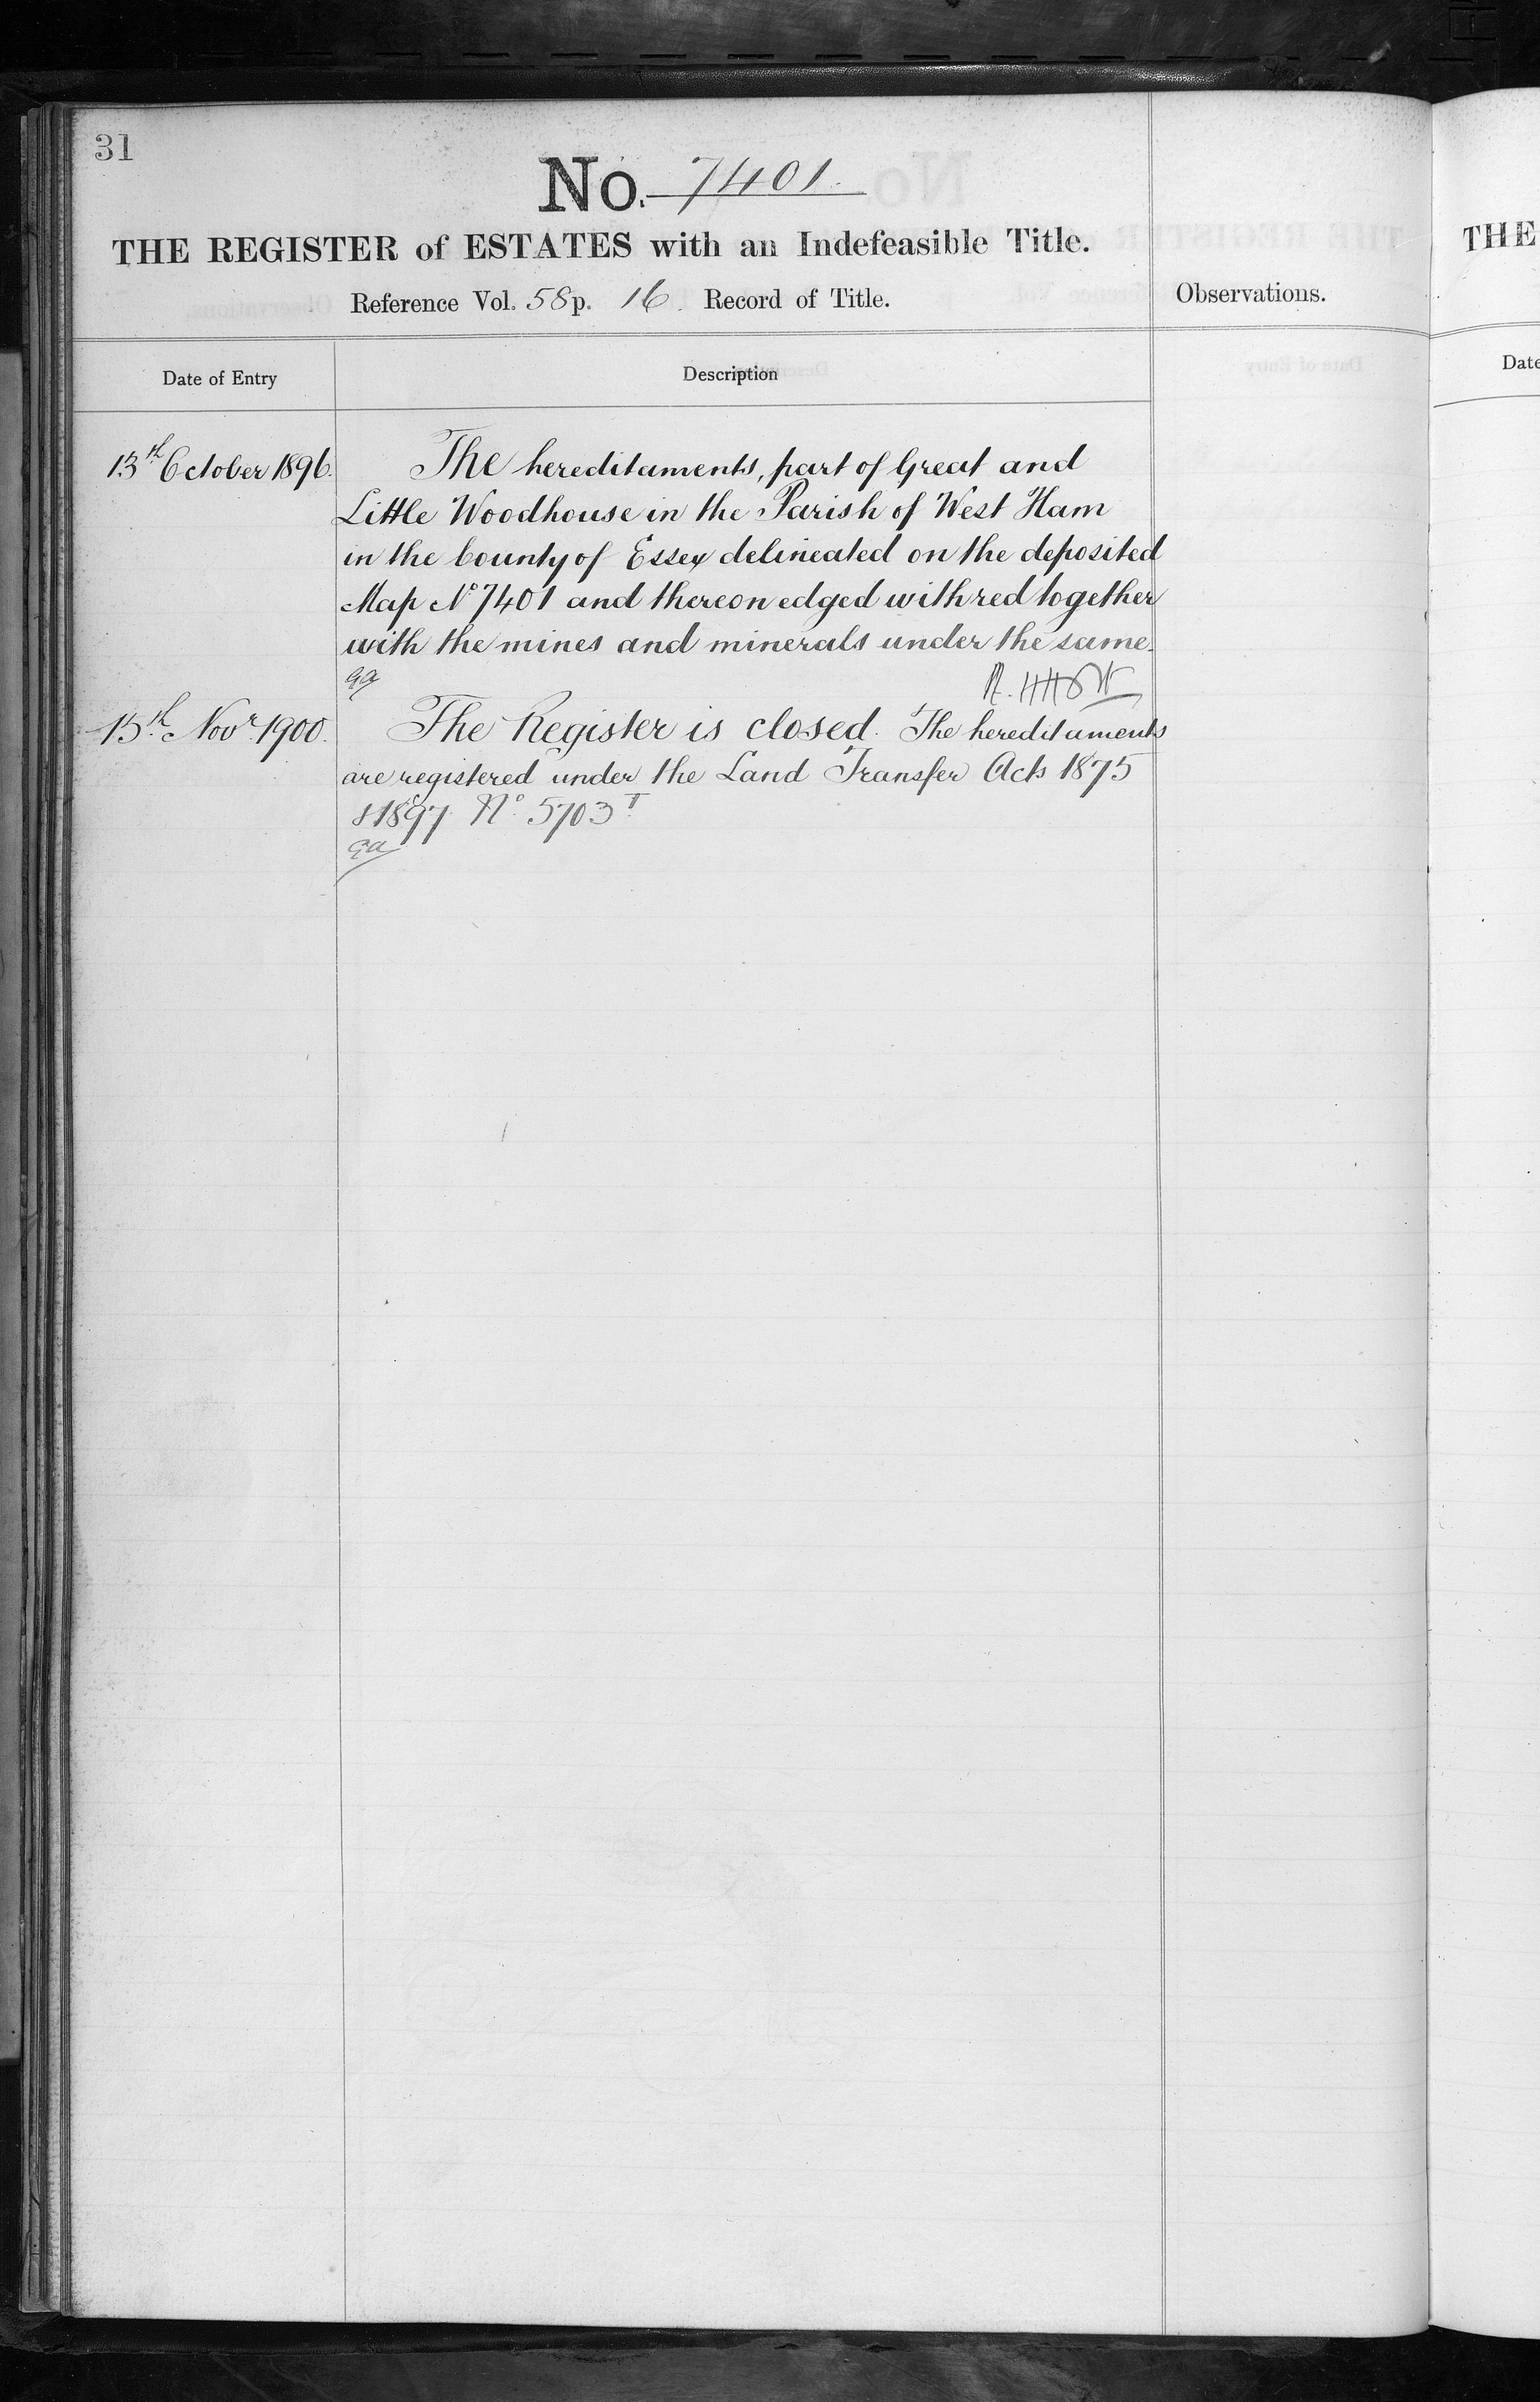 31
No. 7401.
THE REGISTER of ESTATES with an Indefeasible Title.
Reference Vol. 58 p. 16. Record of Title.
Observations.
Date of Entry
Description
13th October 1896.
The hereditaments, part of Great and
Little Woodhouse in the Parish of West Ham
in the County of Essex delineated on the deposited
Map No 7401 and thereon edged with red together
with the mines and minerals under the same.
15th Novr 1900.
The Register is closed. The hereditaments
are registered under the Land Transfer Acts 1875
& 1897 No. 5703
THE
Date